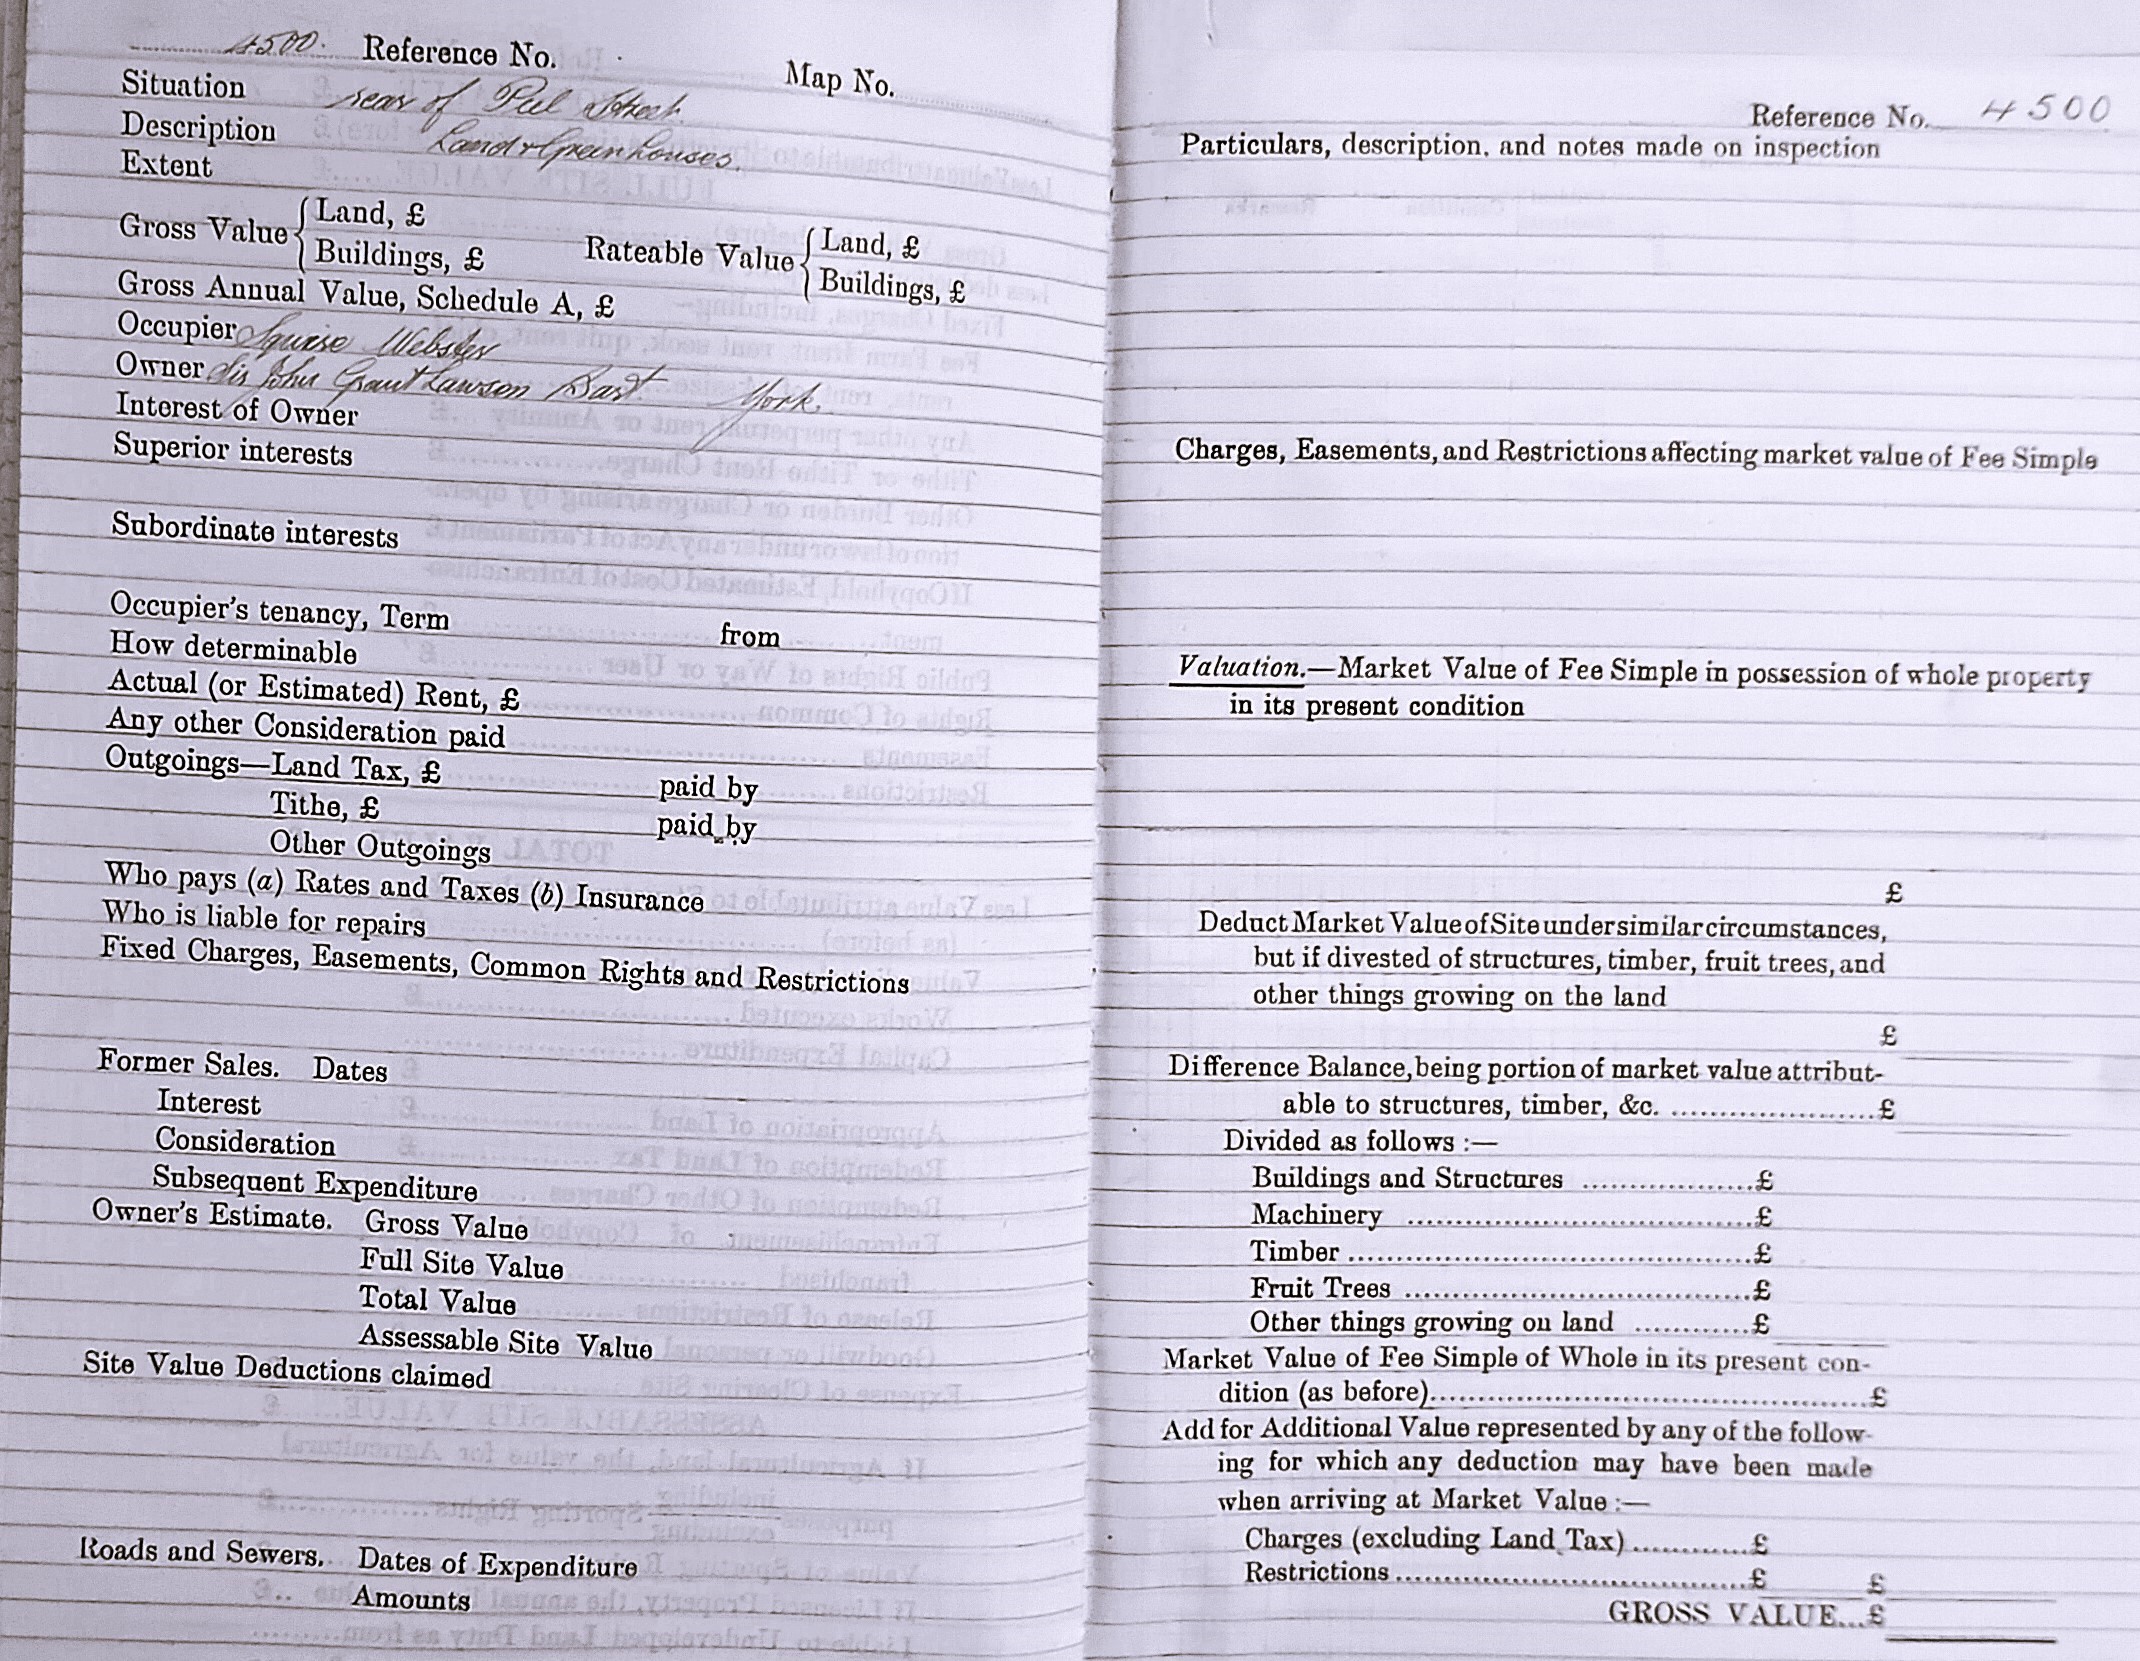 4500. Reference No.
Map No.
Situation rear of Peel Street.
Description Land & Greenhouses.
Extent
Gross Value { Land, £
Buildings, £
Rateable Value { Land, £
Buildings, £
Gross Annual Value, Schedule A, £
Occupier Squire Webster
Owner Sir John Grant Lawson Bart. York.
Interest of Owner
Superior interests
Subordinate interests
Occupier's tenancy, Term from
How determinable
Actual (or Estimated) Rent, £
Any other Consideration paid
Outgoings—Land Tax, £ paid by
Tithe, £ paid by
Other Outgoings
Who pays (a) Rates and Taxes (b) Insurance
Who is liable for repairs
Fixed Charges, Easements, Common Rights and Restrictions
Former Sales. Dates
Interest
Consideration
Subsequent Expenditure
Owner's Estimate. Gross Value
Full Site Value
Total Value
Assessable Site Value
Site Value Deductions claimed
Roads and Sewers. Dates of Expenditure
Amounts
Reference No. 4500
Particulars, description, and notes made on inspection
Charges, Easements, and Restrictions affecting market value of Fee Simple
Valuation.—Market Value of Fee Simple in possession of whole property
in its present condition
£
Deduct Market Value of Site under similar circumstances,
but if divested of structures, timber, fruit trees, and
other things growing on the land
£
Difference Balance, being portion of market value attribut-
able to structures, timber, &c. ....................£
Divided as follows :—
Buildings and Structures .................£
Machinery .................................£
Timber .......................................£
Fruit Trees .................................£
Other things growing on land ............£
Market Value of Fee Simple of Whole in its present con-
dition (as before)..........................................£
Add for Additional Value represented by any of the follow-
ing for which any deduction may have been made
when arriving at Market Value :—
Charges (excluding Land Tax) ............£
Restrictions ...................................£ £
GROSS VALUE...£